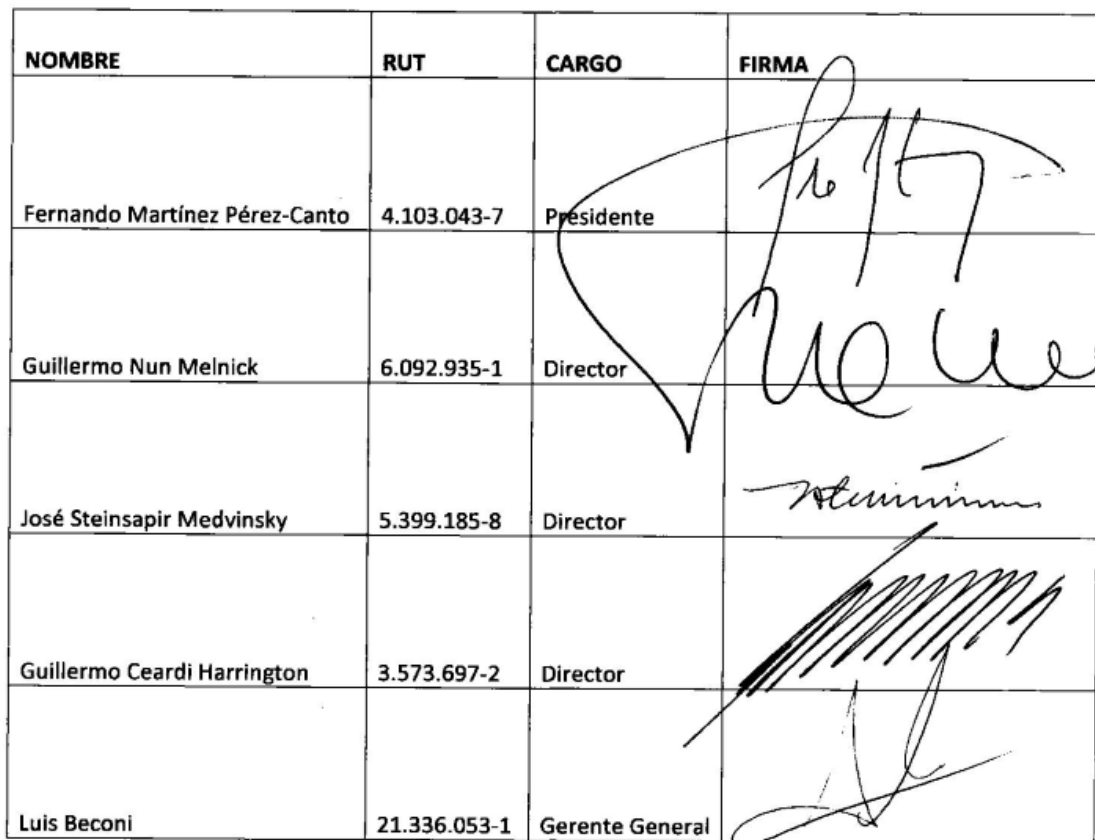 NOMBRE RUT CARGO FIRMA
Fernando Martínez Pérez-Canto 4.103.043-7 Presidente
Guillermo Nun Melnick 6.092.935-1 Director
José Steinsapir Medvinsky 5.399.185-8 Director
Guillermo Ceardi Harrington 3.573.697-2 Director
Luis Beconi 21.336.053-1 Gerente General